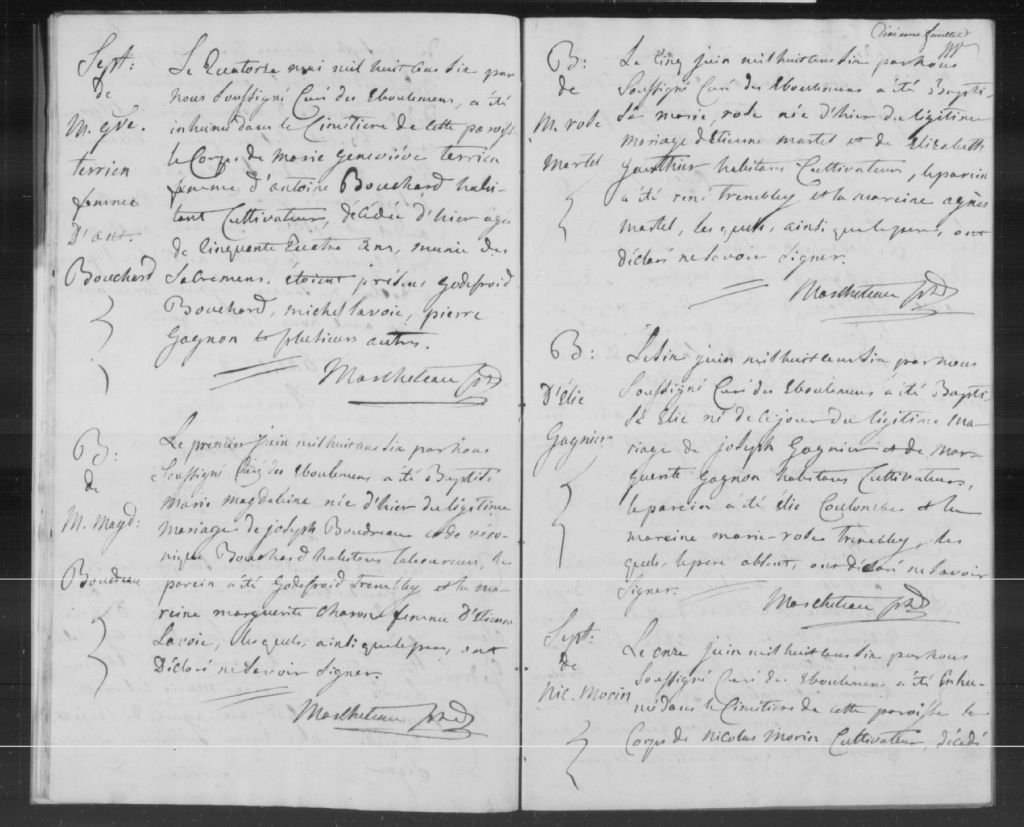 Sept:
de
M. gve.
terrien
femme
D'ant.
Bouchard
Le Quatorze mai mil huit cens dix par
nous Soussigné Curé des Eboulemens, a été
inhumé dans le Cimitiere de cette paroisse
le Corps de Marie Genevieve terrien
femme d'antoine Bouchard habi-
tant Cultivateur, décédée d'hier âgée
de Cinquante Quatre Ans, munie des
Sacremens. étoient présens Godefroid
Bouchard, michel lavoie, pierre
Gagnon et plusieurs autres.
B:
de
M. Magd:
Boudreau
Le premier juin mil huit cens dix par nous
Soussigné Curé des Eboulemens a été Baptisée
Marie magdeleine née d'hier du légitime
mariage de joseph Boudreau et de véro-
nique Bouchard habitans laboureurs, le
parein a été Godefroid trembley et la ma-
reine marguerite femme D'Etienne
Lavoie, lesquels, ainsi que le pere, ont
Déclaré ne savoir Signer.
Dixieme feuillet
B:
de
M. rose
Martel
Le Cinq juin mil huit cens dix par nous
Soussigné Curé des Eboulemens a été Bapti-
sée marie rose née d'hier du légitime
mariage d'Etienne martel et de Elizabeth
Gauthier habitans Cultivateurs, le parein
a été rené trembley et la mareine agnès
martel, lesquels, ainsi que le pere, ont
déclaré ne savoir Signer.
B:
D'Élie
Gagnier
Le Six juin mil huit cens dix par nous
Soussigné Curé des Eboulemens a été Bapti-
sé Elie né de ce jour du légitime Ma-
riage de joseph Gagnier et de Mar-
guerite Gagnon habitans Cultivateurs,
le parein a été élie Coulombe et la
mareine marie-rose trembley, les
quels, le pere absent, ont déclaré ne savoir
Signer.
Sept:
de
Nic. Morin
Le onze juin mil huit cens dix par nous
Soussigné Curé des Eboulemens a été Inhu-
mé dans le Cimitiere de cette paroisse le
Corps de Nicolas Morin Cultivateur, décédé